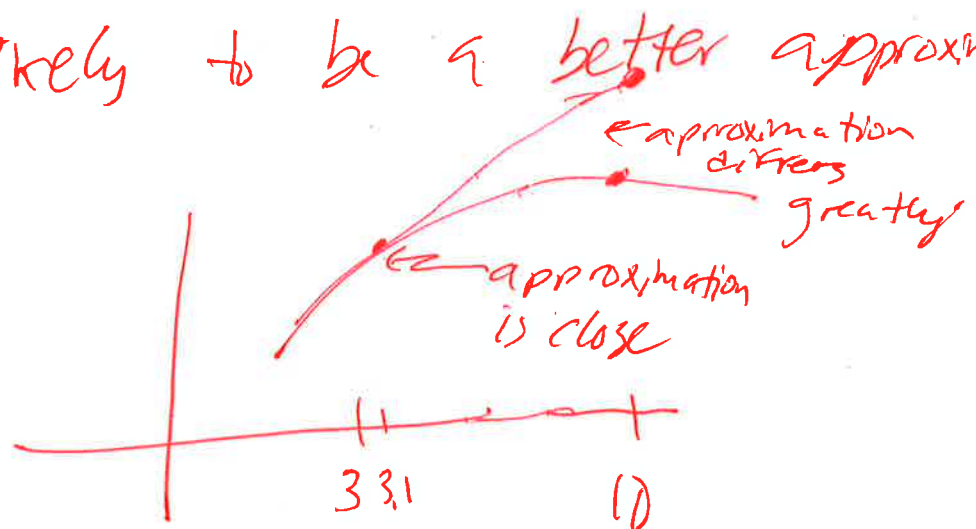 kely to be a better approxim
←aproximation
differs
greatly
←approximation
is close
3 3.1 10